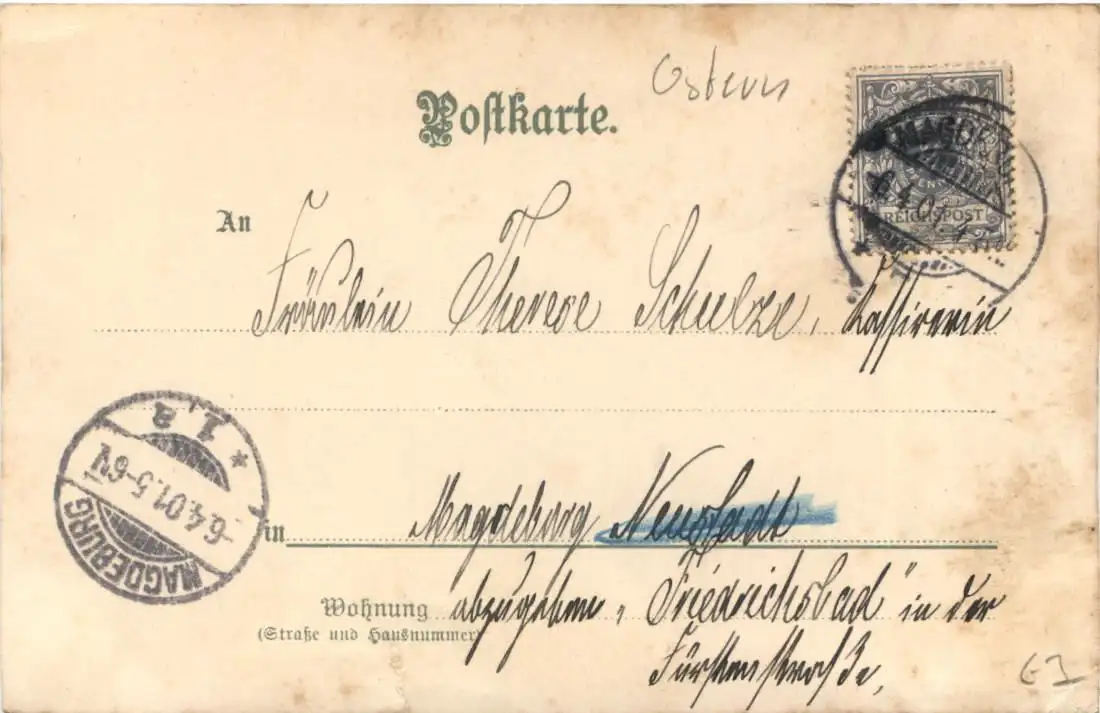 Ostern
Postkarte.
REICHSPOST
MAGDEBURG
6.4.0
An
Fräulein Therese Schulze, Kassirerin
* 1 a
-6.4.01.5-6V.
MAGDEBURG
in Magdeburg Neustadt
Wohnung abzugeben „Friedrichsbad" in der
(Straße und Hausnummer)
Fürstenstraße,